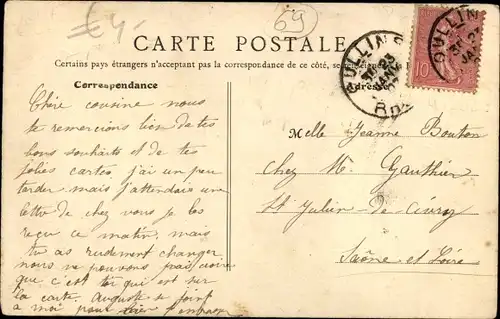 69
CARTE POSTALE
Certains pays étrangers n'acceptant pas la correspondance de ce côté, se
Correspondance
Chère cousine nous
te remercions bien de tes
bons souhaits et de tes
jolies cartes, j'ai un peu
tarder mais j'attendais une
lettre de chez vous je les
reçu ce matin, mais
tu as rudement changer
nous ne pouvons pas croire
que c'est toi qui est sur
la carte. Auguste se joint
à moi pour
OULLINS
RHÔNE
OULLINS
10
Melle Jeanne Bouton
chez M. Gauthier
St Julien-de-Civry
Saône et Loire